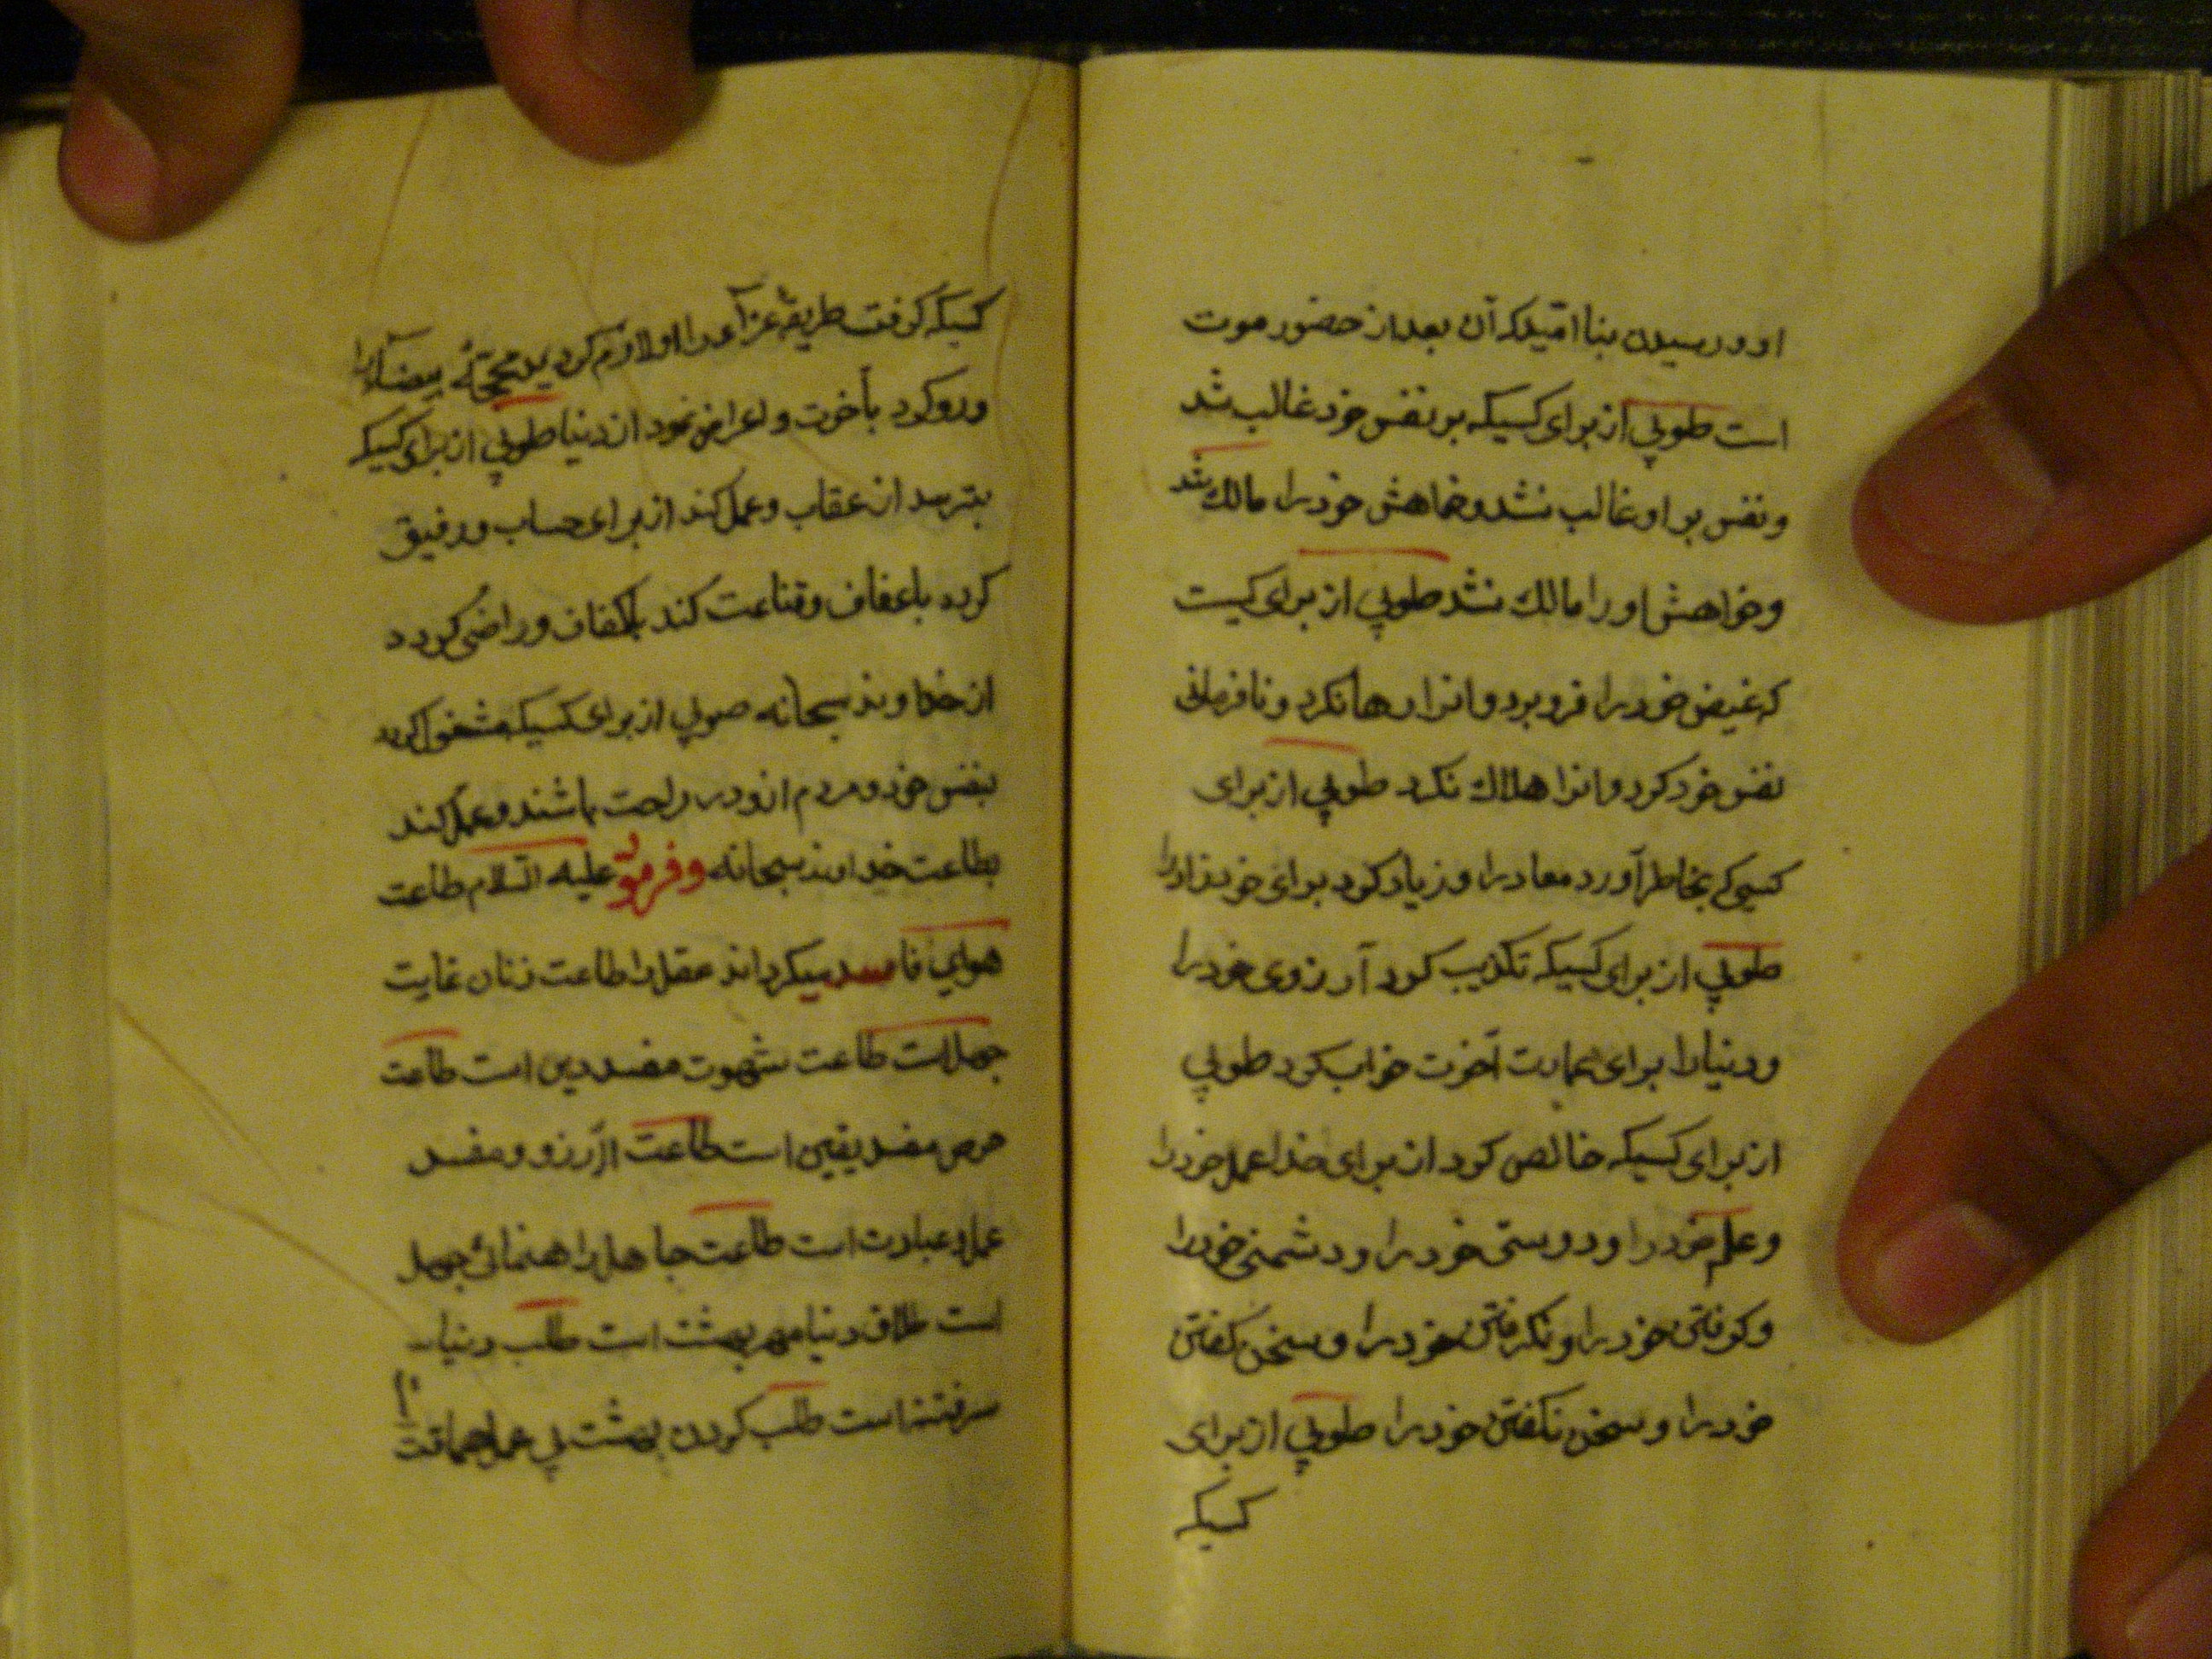 او و رسیدن بنا امّیدکه آن بعد از حضور موت
است طوبی از برای کسیکه بر نفس خود غالب شد
و نفس بر او غالب نشد و خاهش خود را مالك شد
و خواهش او را مالك نشد طوبی از برای کیست
که غیض خود را فرو برد و انرا رها نکرد و نافرمانی
نفس خود کرد و انرا هلاك نکرد طوبی از برای
کسی که بخاطر آورد معاد را و زیاد کرد برای خود زاد را
طوبی از برای کسیکه تکذیب کرد آرزوی خود را
و دنیا را برای عمارت آخرت خراب کرد طوبی
از برای کسیکه خالص کرد از برای خدا عمل خود را
و علم خود را و دوستی خود را و دشمنی خود را
و کرفتن خود را و نکرفتن خود را و سخن کفتن
خود را و سخن نکفتن خود را طوبی از برای
کسیکه
کسیکه کرفت طریقهٔ غرّآء را و لازم کرد ید محجّهٔ بیضآء را
و رو کرد بآخرت و اعراض نمود از دنیا طوبی از برای کسیکه
بترسد از عقاب و عمل کند از برای حساب و رفیق
کرده باعفاف و قناعت کند بکفاف و راضی کردد
از خداوند سبحانه صوبی از برای کسیکه مشغول کرده
بنفس خود و مردم ازو در راحت باشند و عمل کند
بطاعت خداوند سبحانه و فرمود علیه السّلام طاعت
هوای فاسد میکرداند عقل را طاعت زنان غایت
جهل است طاعت شهوت مفسد دین است طاعت
حرص مفسد یقین است طاعت ارّزو و مفسد
عمل و عبادت است طاعت جاهل راهنمائ جهل
است طلاق دنیا مهر بهشت است طلب دنیا
سر فتنه است طلب کردن بهشت بی عمل حماقت